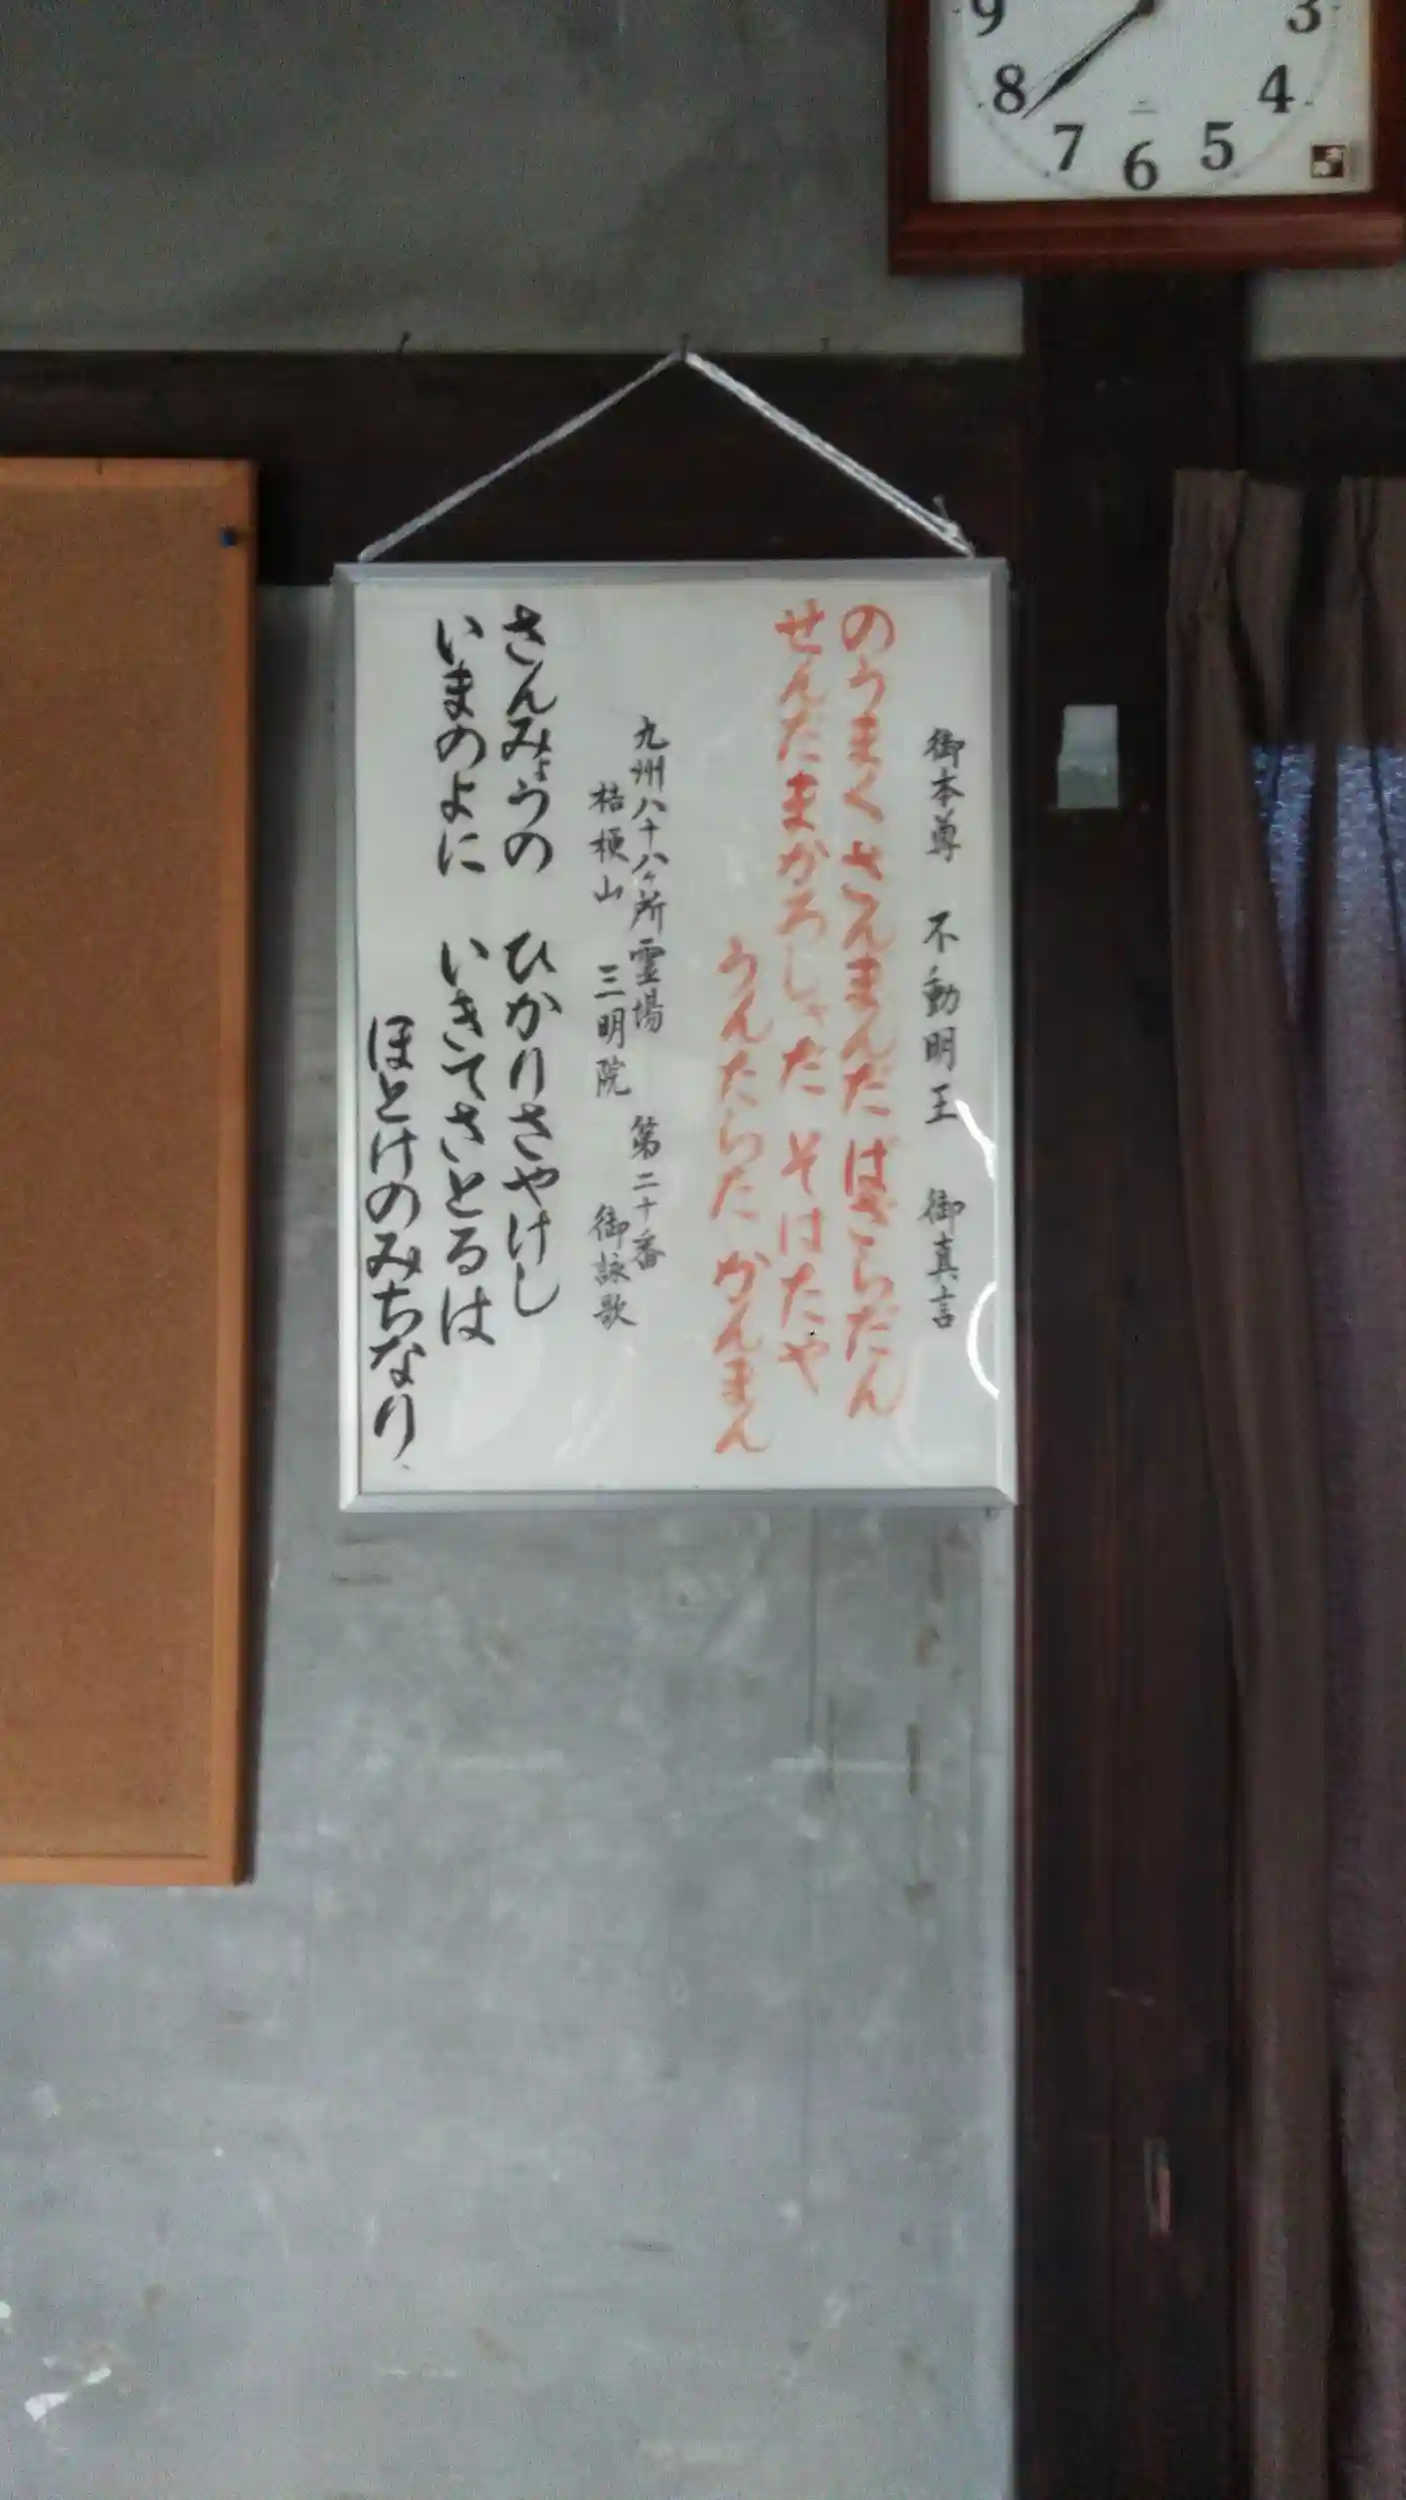 御本尊 不動明王 御真言
のうまく さんまんだ ばざらだん
せんだまかろしゃだ そはたや
うんたらた かんまん
九州八十八ヶ所霊場 第二十番
桔梗山 三明院 御詠歌
さんみょうの ひかりさやけし
いまのよに いきてさとるは
ほとけのみちなり
9
8
7
6
5
4
3